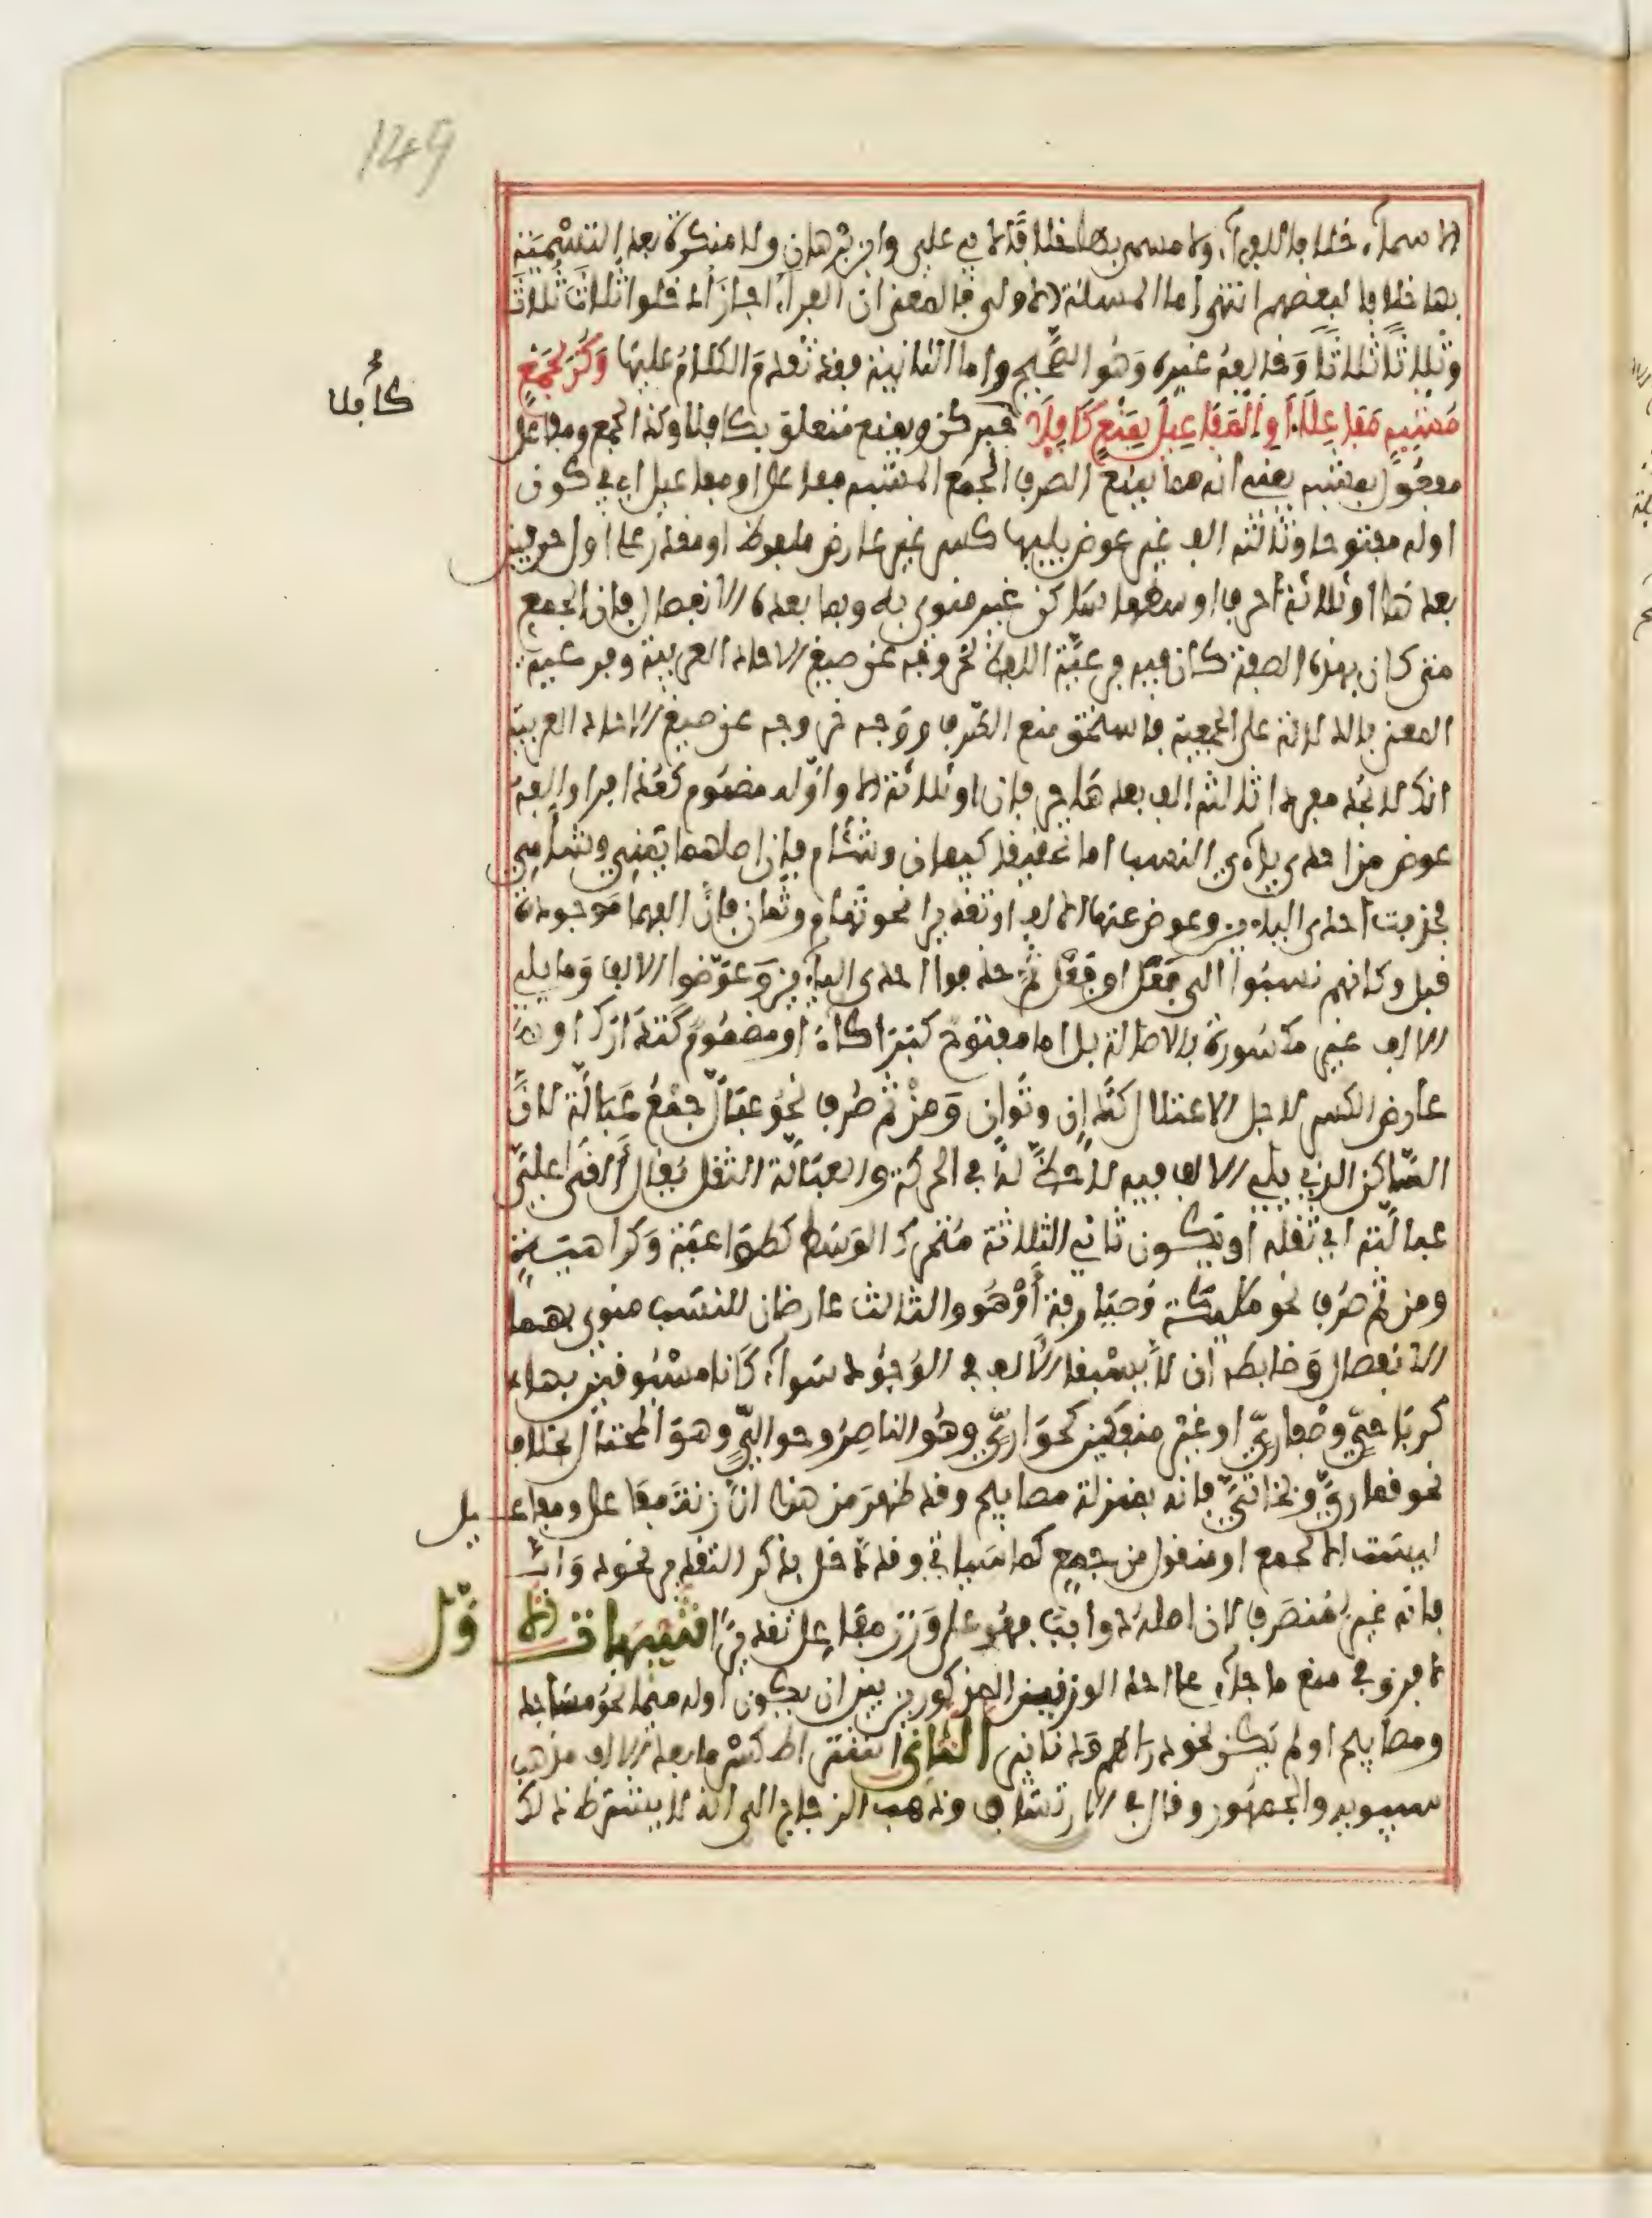 149
الاسماء خلافا للفراء ولا مسمى بها خلافا لابي علي وابن برهان ولا منكرة بعد التسمية
بها خلافا لبعضهم انتهى اما المسئلة الاولى فالمعنى ان الفراء اجاز ادخلوا ثلاث ثلاث
وثلاثا ثلاثا وخالفه غيره وهو الصحيح واما الثانية فقد تقدم الكلام عليها وكن لجمع
مشبه مفاعلا او المفاعيل بمنع كافلا خبر كن وبمنع متعلق بكافلا وكذا لجمع ومفاعل
كافلا
مفعول بمشبه يعني انه مما يمنع الصرف الجمع المشبه مفاعل او مفاعيل اي في كون
اوله مفتوحا وثالثه الف غير عوض يليها كسر غير عارض ملفوظ او مقدر على اول حرفين
بعدها او ثلاثة احرف اوسطها ساكن غير منوي به وبما بعده الانفصال فان الجمع
متى كان بهذه الصفة كان فيه فرعية اللفظ بخروجه عن صيغ الاحاد العربية وفرعية
المعنى بالدلالة على الجمعية فاستحق منع الصرف ووجه خروجه عن صيغ الاحاد العربية
انك لا تجد مفردا ثالثه الف بعدها حرفان او ثلاثة الا واوله مضموم كعذافر او الفه
عوض من احدى ياءي النسب اما تحقيقا كيمان وشئام فان اصلهما يمني وشامي
فحذفت احدى الياءين وعوض عنها الالف او تقديرا نحو تهام وثمان فان الفهما موجودة
قبل وكانهم نسبوا الى فعل او فعل ثم حذفوا احدى الياءين وعوضوا الالف وما يلي
الالف غير مكسورة بالاصالة بل اما مفتوح كبراكاء او مضموم كتدارك او
عارض الكسر لاجل الاعتلال كتدان وتوان ومن ثم صرف نحو عبال جمع عبالة لان
الساكن الذي يلي الالف فيه لا حظ له في الحركة والعبالة الثقل يقال القى علي
عبالته اي ثقله او يكون ثاني الثلاثة متحرك الوسط كطواعية وكراهية
ومن ثم صرف نحو ملائكة وصيارفة او هو والثالث عارضان للنسب منوي بهما
الانفصال وضابطه ان لا يسبقا الالف في الوجود سواء كانا مسبوقين بها
كرباحي وظفاري او غير منفكين كحواري وهو الناصر وحوالي وهو المحتال بخلاف
نحو قماري وبخاتي فانه بمنزلة مصابيح وقد ظهر من هذا ان زنة مفاعل ومفاعيل
ليست الا لجمع او منقول من جمع كما سياتي وقد دخل بذكر التقدير نحو دواب
فانه غير منصرف لان اصله دوابب فهو على وزن مفاعل تقديرا تنبيهات الاول
لا فرق في منع ما جاء على احد الوزنين المذكورين بين ان يكون اوله ميما نحو مساجد
ومصابيح او لم يكن نحو دراهم ودنانير الثاني اشتراط كسر ما بعد الالف مذهب
سيبويه والجمهور وقال في الارتشاف وذهب الزجاج الى انه لا يشترط ذلك